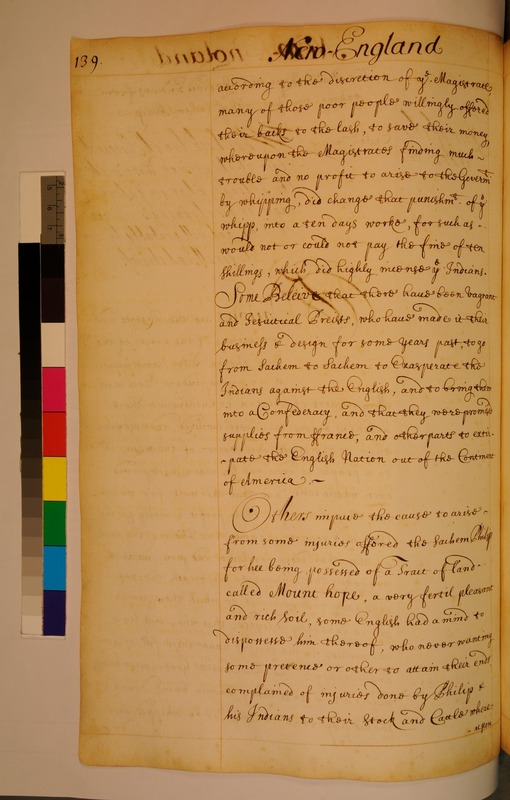 139.
New-England
according to the discretion of yᵉ. Magistrates,
many of those poor people willingly offered
their backs to the lash, to save their money,
whereupon the Magistrates finding much -
trouble and no profit to arise to the Governmᵗ
by whipping, did change that punishmᵗ. of yᵉ
whipp, into a ten days worke, for such as -
would not or could not pay the fine of ten
shillings, which did highly incense yᵉ Indians.
Some Beleive that there have been vagrant
and Jesuitical Preists, who have made it their
business & design for some years past, to go
from Sachem to Sachem to Exasperate the
Indians against the English, and to bring them
into a Confederacy, and that they were promised
supplies from ffrance, and other parts to extir-
-pate the English Nation out of the Continent
of America. ~
Others impute the cause to arise -
from some injuries offered the Sachem Philip
for hee being possessed of a Tract of land -
called Mount hope, a very fertil pleasant
and rich Soil, some English had a mind to
dispossesse him thereof, who never wanting
some pretence or other to attain their ends,
complained of injuries done by Philip &
his Indians to their Stock and Cattle where-
-upon